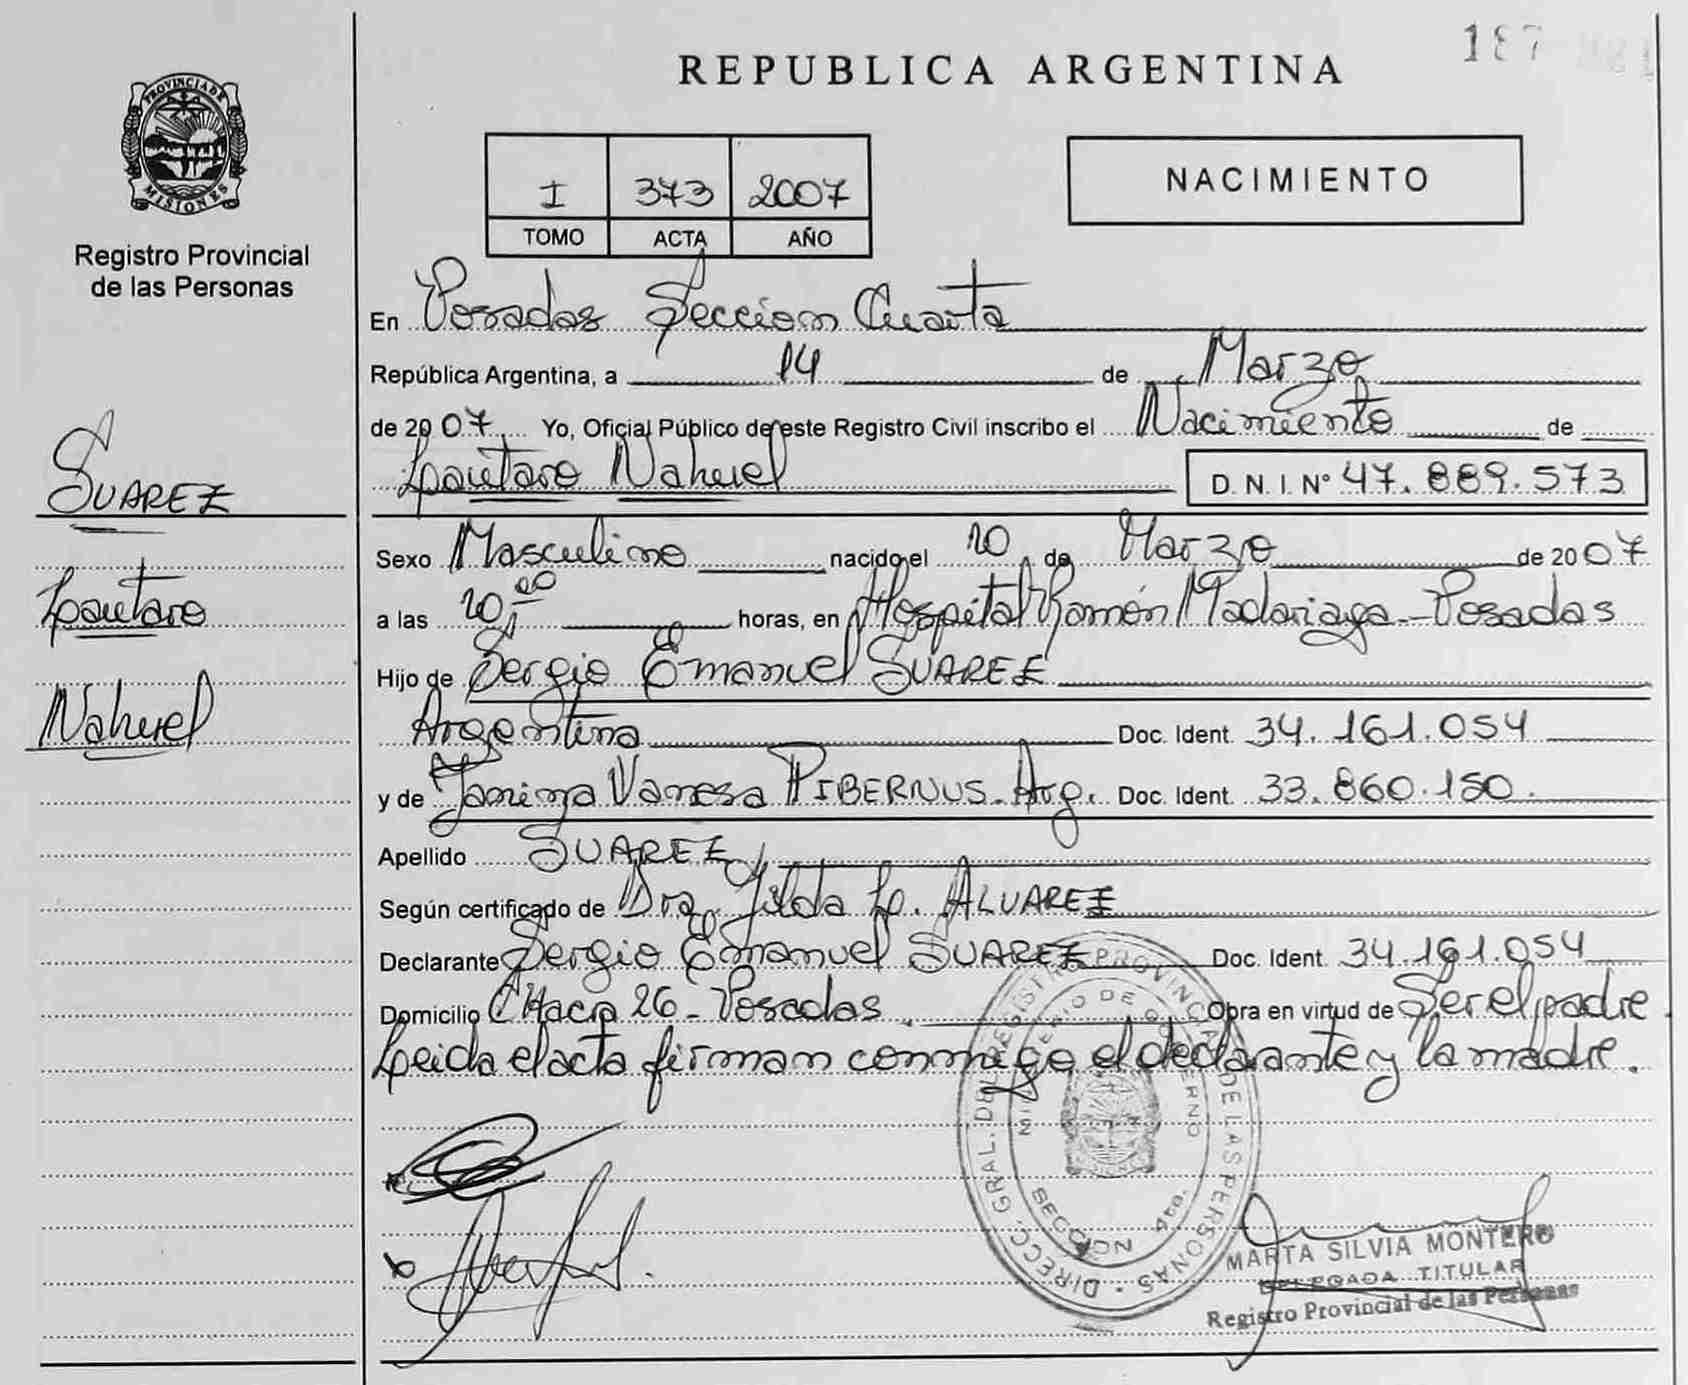 187
REPUBLICA ARGENTINA
PROVINCIA DE
MISIONES
Registro Provincial
de las Personas
I 373 2007
TOMO ACTA AÑO
NACIMIENTO
En Posadas Seccion Cuarta
República Argentina, a 14 de Marzo
de 2007 Yo, Oficial Público de este Registro Civil inscribo el Nacimiento de
Lautaro Nahuel D. N. I. N° 47.889.573
SUAREZ
Lautaro
Nahuel
Sexo Masculino nacido el 10 de Marzo de 2007
a las 10,00 horas, en Hospital Ramón Madariaga - Posadas
Hijo de Sergio Emanuel SUAREZ
Argentina Doc. Ident. 34.161.054
y de Janina Vanesa PIBERNUS - Arg. Doc. Ident. 33.860.150.
Apellido SUAREZ
Según certificado de Dra. Gilda L. ALVAREZ
Declarante Sergio Emanuel SUAREZ Doc. Ident. 34.161.054
Domicilio CHacra 26 - Posadas. Obra en virtud de Ser el padre.
Leida el acta firman conmigo el declarante y la madre.
DIRECC. GRAL. DEL REGISTRO PROVINCIAL DE LAS PERSONAS
MINISTERIO DE GOBIERNO
SECCION 4ta.
MARTA SILVIA MONTERO
DELEGADA TITULAR
Registro Provincial de las Personas